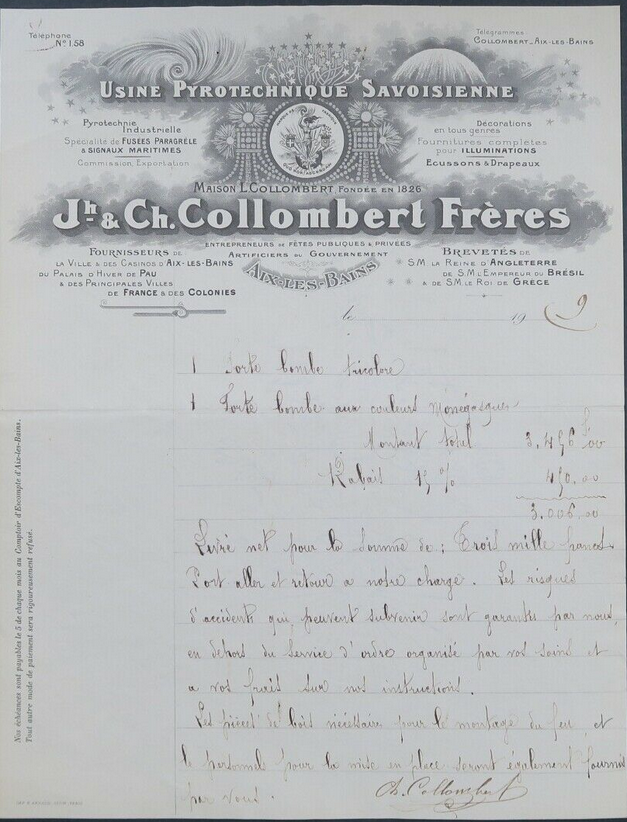 Téléphone
No 1.58
Télégrammes
COLLOMBERT_AIX-LES-BAINS
USINE PYROTECHNIQUE SAVOISIENNE
Pyrotechnie
Industrielle
Spécialité de FUSÉES PARAGRÊLE
& SIGNAUX MARITIMES
Commission, Exportation
Décorations
en tous genres
Fournitures complètes
pour ILLUMINATIONS
ECUSSONS & DRAPEAUX
MAISON L. COLLOMBERT FONDÉE EN 1826
Jh & Ch. Collombert Frères
ENTREPRENEURS DE FÊTES PUBLIQUES & PRIVÉES
ARTIFICIERS DU GOUVERNEMENT
AIX-LES-BAINS
FOURNISSEURS DE
LA VILLE & DES CASINOS D'AIX-LES-BAINS
DU PALAIS D'HIVER DE PAU
& DES PRINCIPALES VILLES
DE FRANCE & DES COLONIES
BREVETÉS DE
S.M. LA REINE D'ANGLETERRE
DE S.M. L'EMPEREUR DU BRÉSIL
& DE S.M. LE ROI DE GRÈCE
le 19 9
1 Forte bombe tricolore
1 Forte bombe aux couleurs Monégasques
Montant total 3.456,00
Rabais 15 % 450.00
3.006,00
Livré net pour la somme de : Trois mille francs.
Port aller et retour a notre charge. Les risques
d'accidents qui peuvent subvenir sont garantis par nous,
en dehors du Service d'ordre organisé par vos soins et
a vos frais sur nos instructions.
Les pièces de bois nécessaire pour le montage du feu, et
le personnel pour la mise en place seront également fournis
par vous.
Ch. Collombert
Nos échéances sont payables le 5 de chaque mois au Comptoir d'Escompte d'Aix-les-Bains.
Tout autre mode de paiement sera rigoureusement refusé.